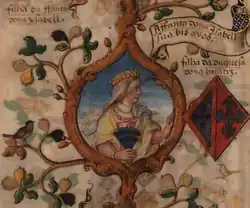 filha da Iffante
dona ysabell.
Iffante dona Isabell
a bis avoo.
filha da duquesa
dona britiz.